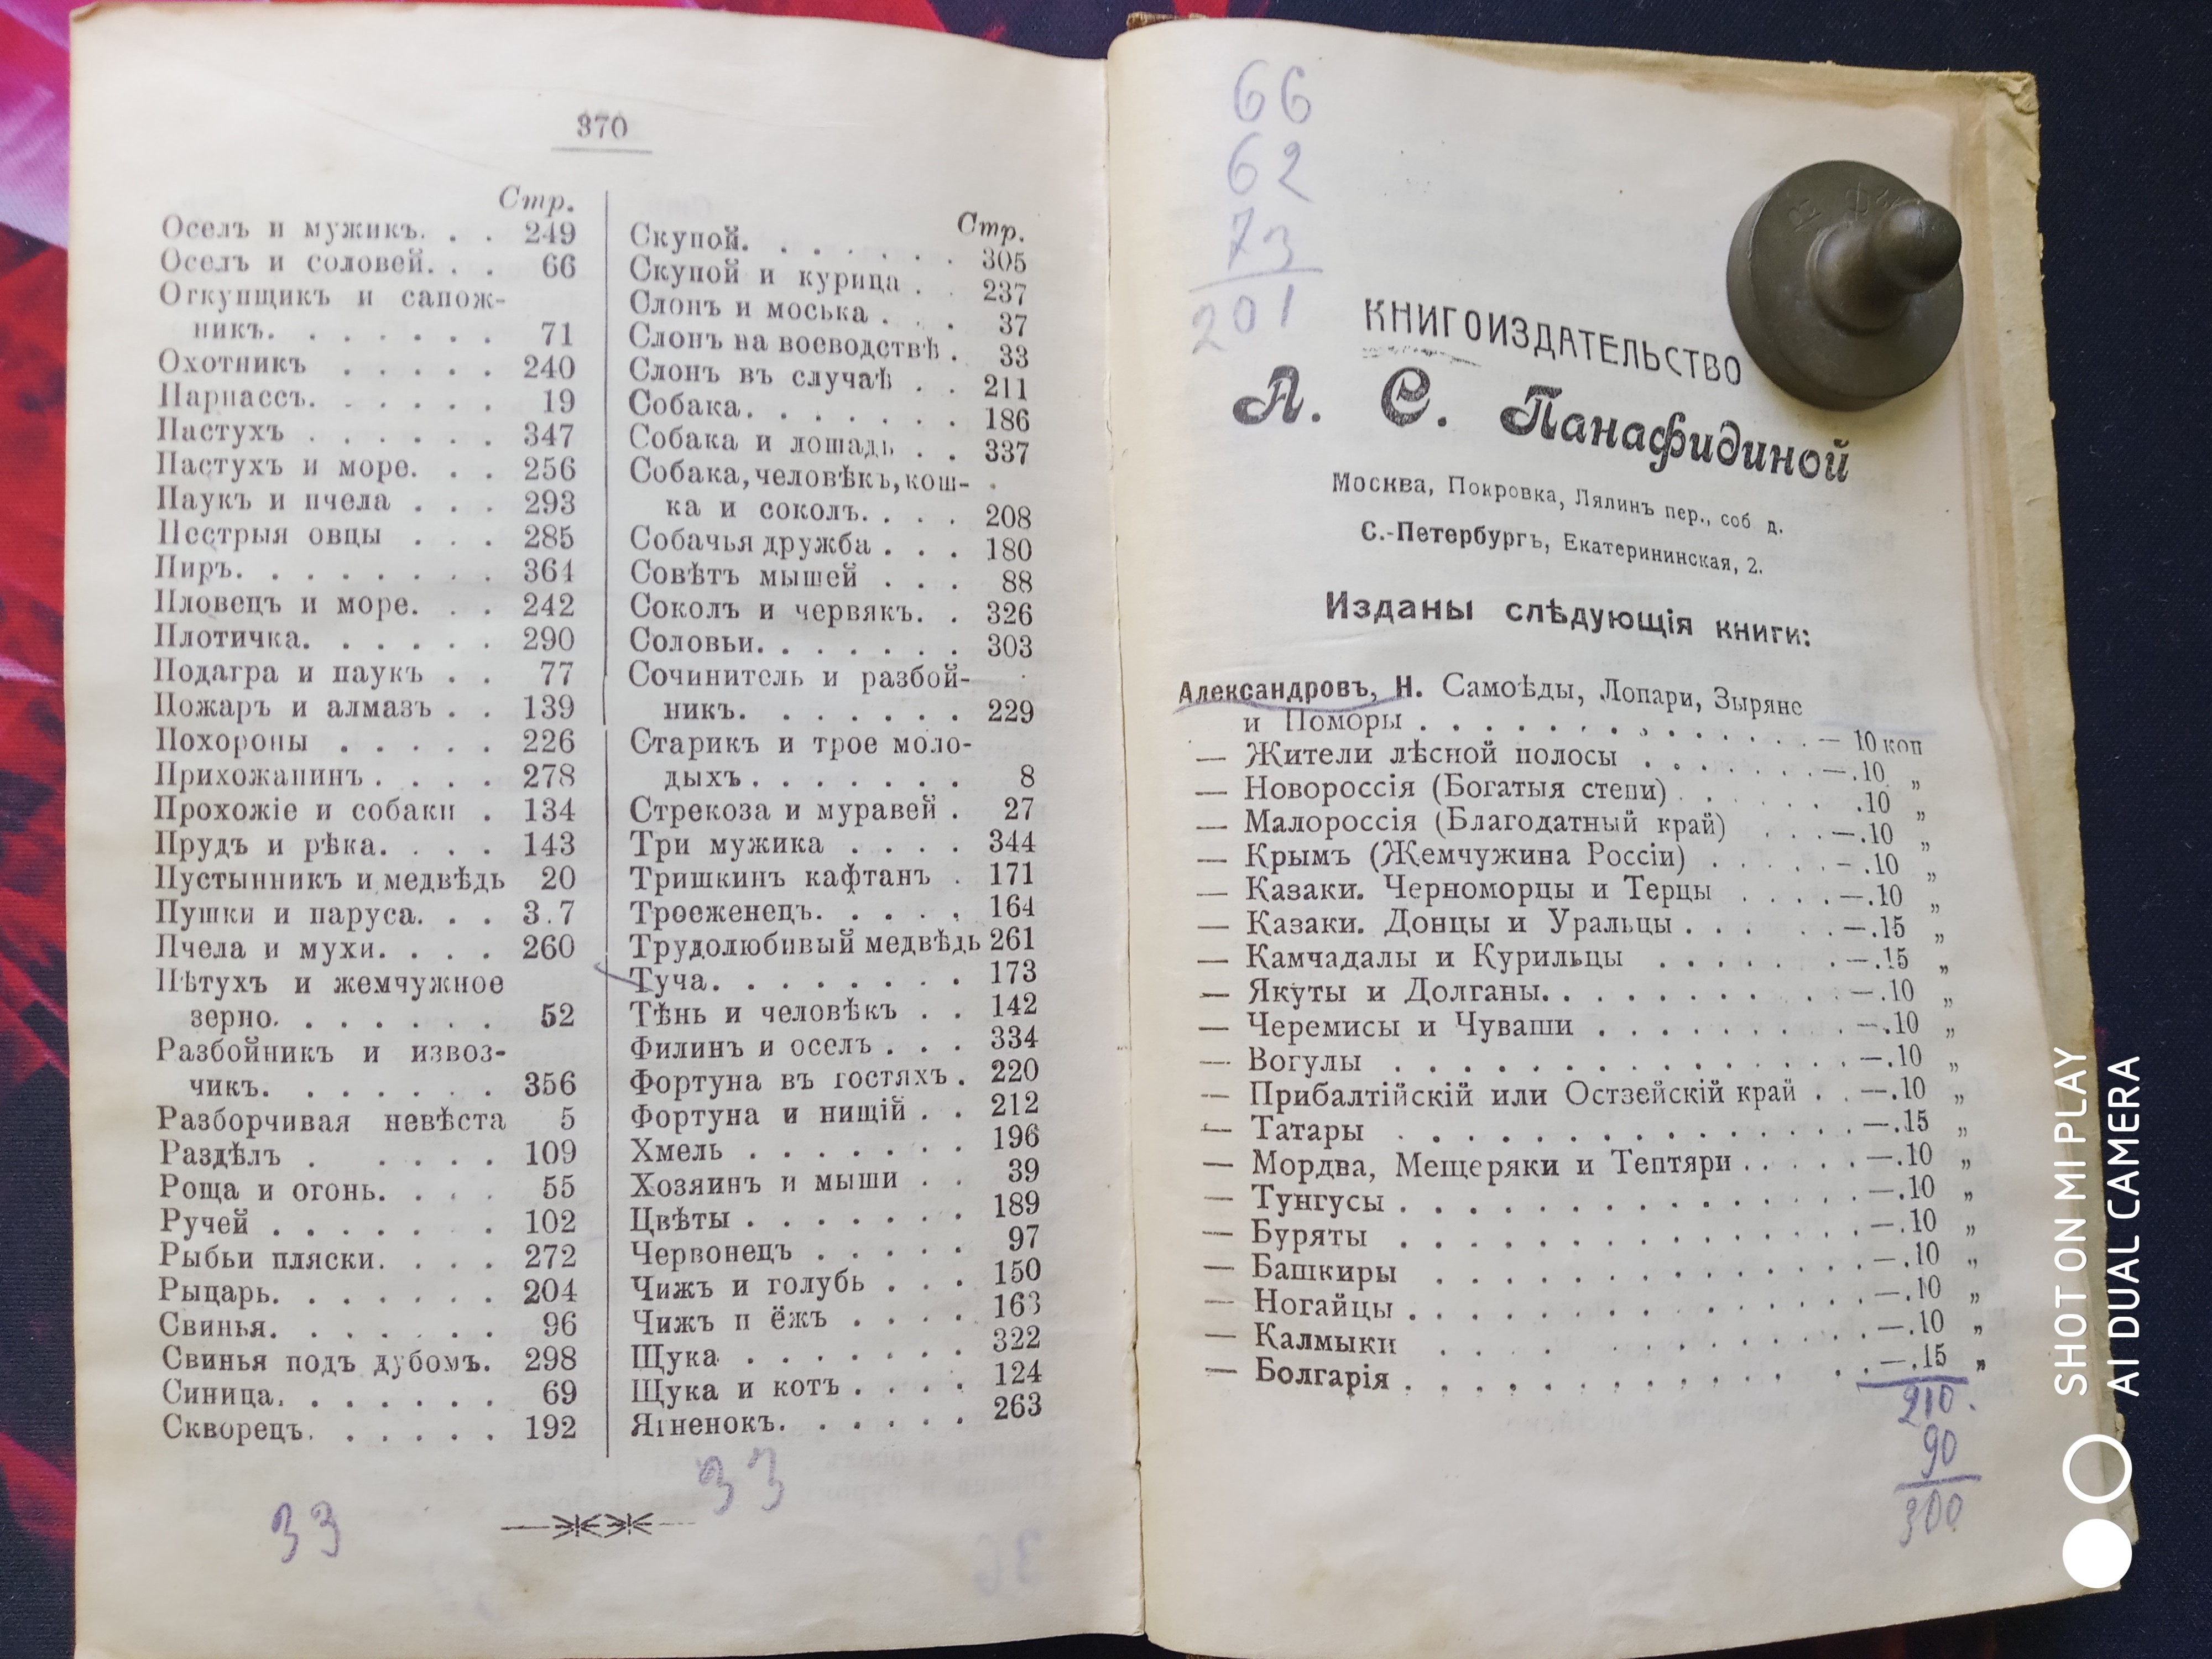 370
Стр.
Оселъ и мужикъ. . . 249
Оселъ и соловей. . . 66
Откупщикъ и сапож-
никъ. . . . . . . 71
Охотникъ . . . . . 240
Парнассъ. . . . . . 19
Пастухъ . . . . . . 347
Пастухъ и море. . . 256
Паукъ и пчела . . . 293
Пестрыя овцы . . . 285
Пиръ. . . . . . . . 364
Пловецъ и море. . . 242
Плотичка. . . . . . 290
Подагра и паукъ . . 77
Пожаръ и алмазъ . . 139
Похороны . . . . . 226
Прихожанинъ . . . . 278
Прохожіе и собаки . 134
Прудъ и рѣка. . . . 143
Пустынникъ и медвѣдь 20
Пушки и паруса. . . 3.7
Пчела и мухи. . . . 260
Пѣтухъ и жемчужное
зерно. . . . . . . 52
Разбойникъ и извоз-
чикъ. . . . . . . 356
Разборчивая невѣста 5
Раздѣлъ . . . . . 109
Роща и огонь. . . . 55
Ручей . . . . . . . 102
Рыбьи пляски. . . . 272
Рыцарь. . . . . . . 204
Свинья. . . . . . . 96
Свинья подъ дубомъ. 298
Синица. . . . . . . 69
Скворецъ. . . . . . 192
33
Стр.
Скупой. . . . . . . 305
Скупой и курица . . 237
Слонъ и моська . . . 37
Слонъ на воеводствѣ . 33
Слонъ въ случаѣ . . 211
Собака. . . . . . . 186
Собака и лошадь . . 337
Собака, человѣкъ, кош-
ка и соколъ. . . . 208
Собачья дружба . . . 180
Совѣтъ мышей . . . 88
Соколъ и червякъ. . 326
Соловьи. . . . . . . 303
Сочинитель и разбой-
никъ. . . . . . . 229
Старикъ и трое моло-
дыхъ . . . . . . . 8
Стрекоза и муравей . 27
Три мужика . . . . 344
Тришкинъ кафтанъ . 171
Троеженецъ. . . . . 164
Трудолюбивый медвѣдь 261
Туча. . . . . . . . 173
Тѣнь и человѣкъ . . 142
Филинъ и оселъ . . . 334
Фортуна въ гостяхъ . 220
Фортуна и нищій . . 212
Хмель . . . . . . . 196
Хозяинъ и мыши . . 39
Цвѣты . . . . . . . 189
Червонецъ . . . . . 97
Чижъ и голубь . . . 150
Чижъ и ёжъ . . . . 163
Щука . . . . . . . 322
Щука и котъ . . . . 124
Ягненокъ. . . . . . 263
33
66
62
73
201
КНИГОИЗДАТЕЛЬСТВО
А. С. Панафидиной
Москва, Покровка, Лялинъ пер., соб д.
С.-Петербургъ, Екатерининская, 2.
Изданы слѣдующія книги:
Александровъ, Н. Самоѣды, Лопари, Зыряне
и Поморы . . . . . . . . . . . . — 10 коп
— Жители лѣсной полосы . . . . . . —.10 „
— Новороссія (Богатыя степи) . . . . . .10 „
— Малороссія (Благодатный край) . . . —.10 „
— Крымъ (Жемчужина Россіи) . . . . —.10 „
— Казаки. Черноморцы и Терцы . . . . —.10 „
— Казаки. Донцы и Уральцы . . . . . —.15 „
— Камчадалы и Курильцы . . . . . —.15 „
— Якуты и Долганы. . . . . . . . . —.10 „
— Черемисы и Чуваши . . . . . . . —.10 „
— Вогулы . . . . . . . . . . . . . —.10 „
— Прибалтійскій или Остзейскій край . . —.10 „
— Татары . . . . . . . . . . . . . —.15 „
— Мордва, Мещеряки и Тептяри . . . . —.10 „
— Тунгусы . . . . . . . . . . . . . —.10 „
— Буряты . . . . . . . . . . . . . —.10 „
— Башкиры . . . . . . . . . . . . —.10 „
— Ногайцы . . . . . . . . . . . . . —.10 „
— Калмыки . . . . . . . . . . . . —.10 „
— Болгарія . . . . . . . . . . . . —.15 „
210.
90
300
SHOT ON MI PLAY
AI DUAL CAMERA